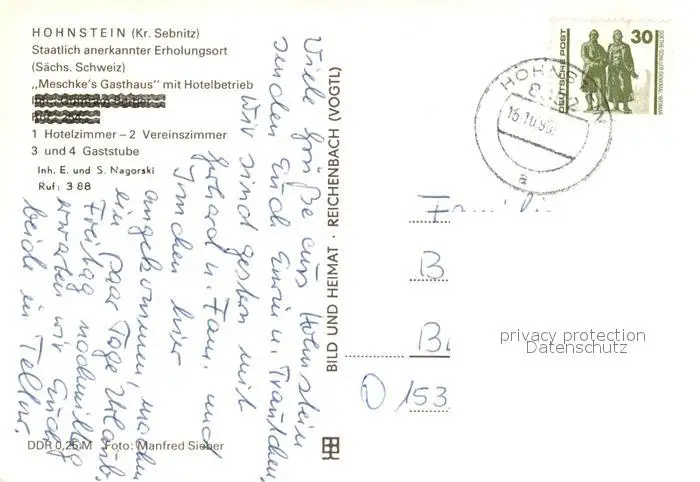 HOHNSTEIN (Kr. Sebnitz)
Staatlich anerkannter Erholungsort
(Sächs. Schweiz)
„Meschke's Gasthaus" mit Hotelbetrieb
1 Hotelzimmer – 2 Vereinszimmer
3 und 4 Gaststube
Inh. E. und S. Nagorski
Ruf: 3 88
Viele Grüße aus Hohnstein
senden Euch Erwin u. Trautchen.
Wir sind gestern mit
Gerhard u. Fam. und
hier
angekommen, machen
ein paar Tage Urlaub.
Freitag nachmittag
erwarten wir Euch
beide in
DDR 0,25 M Foto: Manfred Sieber
BILD UND HEIMAT · REICHENBACH (VOGTL)
DEUTSCHE POST
30
GOETHE-SCHILLER-DENKMAL · WEIMAR
HOHNSTEIN
16.10.90
a
Familie
B
B
153
privacy protection
Datenschutz